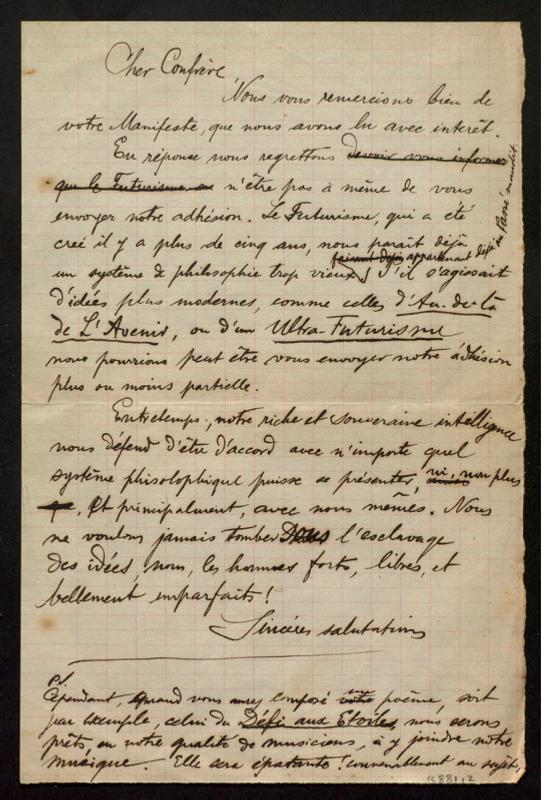 Cher Confrère
Nous vous remercions bien de
votre Manifeste, que nous avons lu avec interêt.
En réponse nous regrettons devoir vous informer
que le Futurisme n'être pas à même de vous
envoyer notre adhésion. Le Futurisme, qui a été
creé il y a plus de cinq ans, nous paraît déjà
faisant déjà appartenant déjà au Passé maudit.
un système de philosophie trop vieux, S'il s'agissait
d'idées plus modernes, comme celles d'Au-de-là
de L'Avenir, ou d'un Ultra-Futurisme
nous pourrions peut être vous envoyer notre ádhésion
plus ou moins partielle.
Entretemps, notre riche et souveraine intélligence
nous défend d'être d'accord avec n'importe quel
système phisolophique puisse se présenter, ni, non plus
que, Et principalment, avec nous mêmes. Nous
ne voulons jamais tomber Dans l'esclavage
des idées, nous, les hommes forts, libres, et
bellement imparfaits!
Sincéres salutations
P.S.
Cépendant, Quand vous aurez composé un votre poème, soit
par exemple, celui du Défi aux Etoiles, nous serons
prêts, en notre qualité de musiciens, à y joindre notre
musique. Elle sera épatante! convenablement au sujet,
K881,2